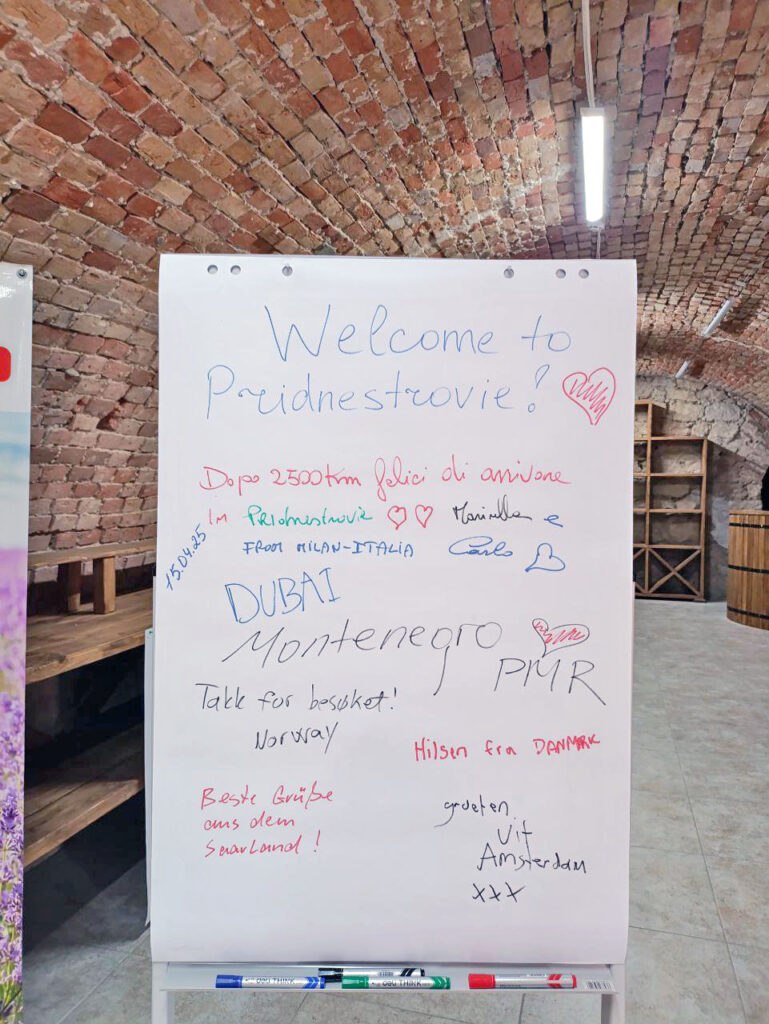 Welcome to
Pridnestrovie!
Dopo 2500km felici di arrivare
in PRIDNESTROVIE Marinella e
FROM MILAN-ITALIA Carlo
15.04.25
DUBAI
Montenegro
PMR
Takk for besøket!
Norway
Hilsen fra DANMARK
Beste Grüße
aus dem
Saarland!
groeten
uit
Amsterdam
xxx
deli THINK
deli THINK